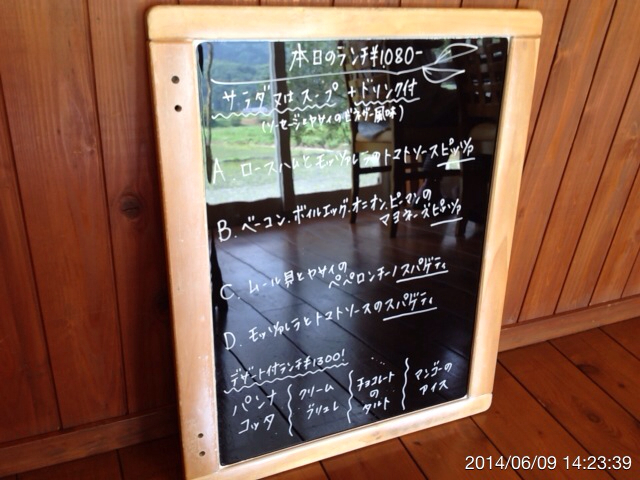 本日のランチ¥1080-
サラダ又は スープ + ドリンク付
(ソーセージとヤサイのビネガー風味)
A. ロースハムとモッツァレラのトマトソースピッツァ
B. ベーコン、ボイルエッグ、オニオン、ピーマンの
マヨネーズピッツァ
C. ムール貝とヤサイの
ペペロンチーノスパゲティ
D. モッツァレラとトマトソースのスパゲティ
デザート付ランチ¥1300!
パンナ
コッタ
クリーム
ブリュレ
チョコレート
の
タルト
マンゴーの
アイス
2014/06/09 14:23:39